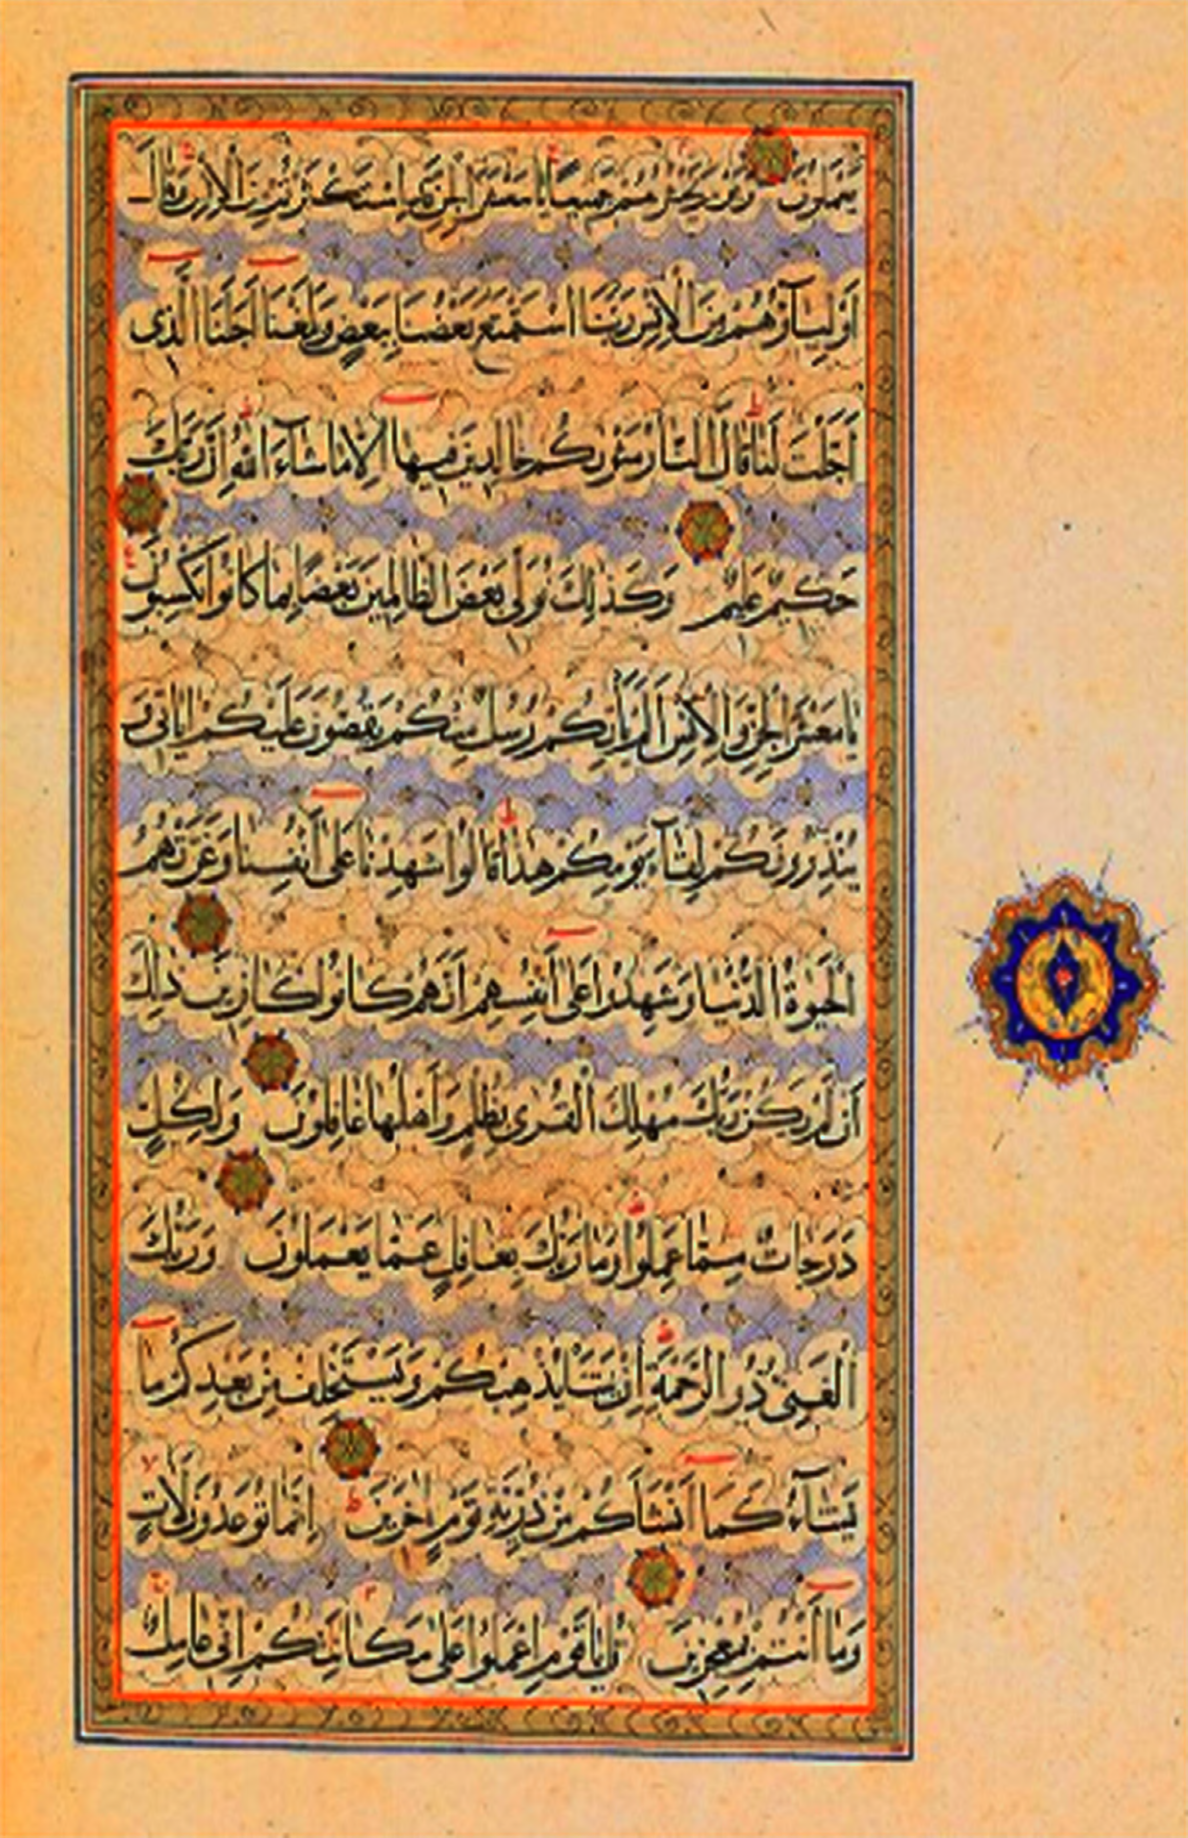 يَعْمَلُونَ وَيَوْمَ يَحْشُرُهُمْ جَمِيعًا يَا مَعْشَرَ الْجِنِّ قَدِ اسْتَكْثَرْتُمْ مِنَ الْإِنْسِ وَقَالَ
أَوْلِيَآؤُهُمْ مِنَ الْإِنْسِ رَبَّنَا اسْتَمْتَعَ بَعْضُنَا بِبَعْضٍ وَبَلَغْنَا أَجَلَنَا الَّذِي
أَجَّلْتَ لَنَا قَالَ النَّارُ مَثْوٰىكُمْ خَالِدِينَ فِيهَا إِلَّا مَا شَآءَ اللّٰهُ إِنَّ رَبَّكَ
حَكِيمٌ عَلِيمٌ وَكَذٰلِكَ نُوَلِّي بَعْضَ الظَّالِمِينَ بَعْضًا بِمَا كَانُوا يَكْسِبُونَ
يَا مَعْشَرَ الْجِنِّ وَالْإِنْسِ أَلَمْ يَأْتِكُمْ رُسُلٌ مِنْكُمْ يَقُصُّونَ عَلَيْكُمْ اٰيَاتِي وَ
يُنْذِرُونَكُمْ لِقَآءَ يَوْمِكُمْ هٰذَا قَالُوا شَهِدْنَا عَلٰى أَنْفُسِنَا وَغَرَّتْهُمُ
الْحَيٰوةُ الدُّنْيَا وَشَهِدُوا عَلٰى أَنْفُسِهِمْ أَنَّهُمْ كَانُوا كَافِرِينَ ذٰلِكَ
أَنْ لَمْ يَكُنْ رَبُّكَ مُهْلِكَ الْقُرٰى بِظُلْمٍ وَأَهْلُهَا غَافِلُونَ وَلِكُلٍّ
دَرَجَاتٌ مِمَّا عَمِلُوا وَمَا رَبُّكَ بِغَافِلٍ عَمَّا يَعْمَلُونَ وَرَبُّكَ
الْغَنِيُّ ذُو الرَّحْمَةِ إِنْ يَشَأْ يُذْهِبْكُمْ وَيَسْتَخْلِفْ مِنْ بَعْدِكُمْ مَا
يَشَآءُ كَمَا أَنْشَأَكُمْ مِنْ ذُرِّيَّةِ قَوْمٍ اٰخَرِينَ إِنَّمَا تُوعَدُونَ لَاٰتٍ
وَمَا أَنْتُمْ بِمُعْجِزِينَ قُلْ يَا قَوْمِ اعْمَلُوا عَلٰى مَكَانَتِكُمْ إِنِّي عَامِلٌ